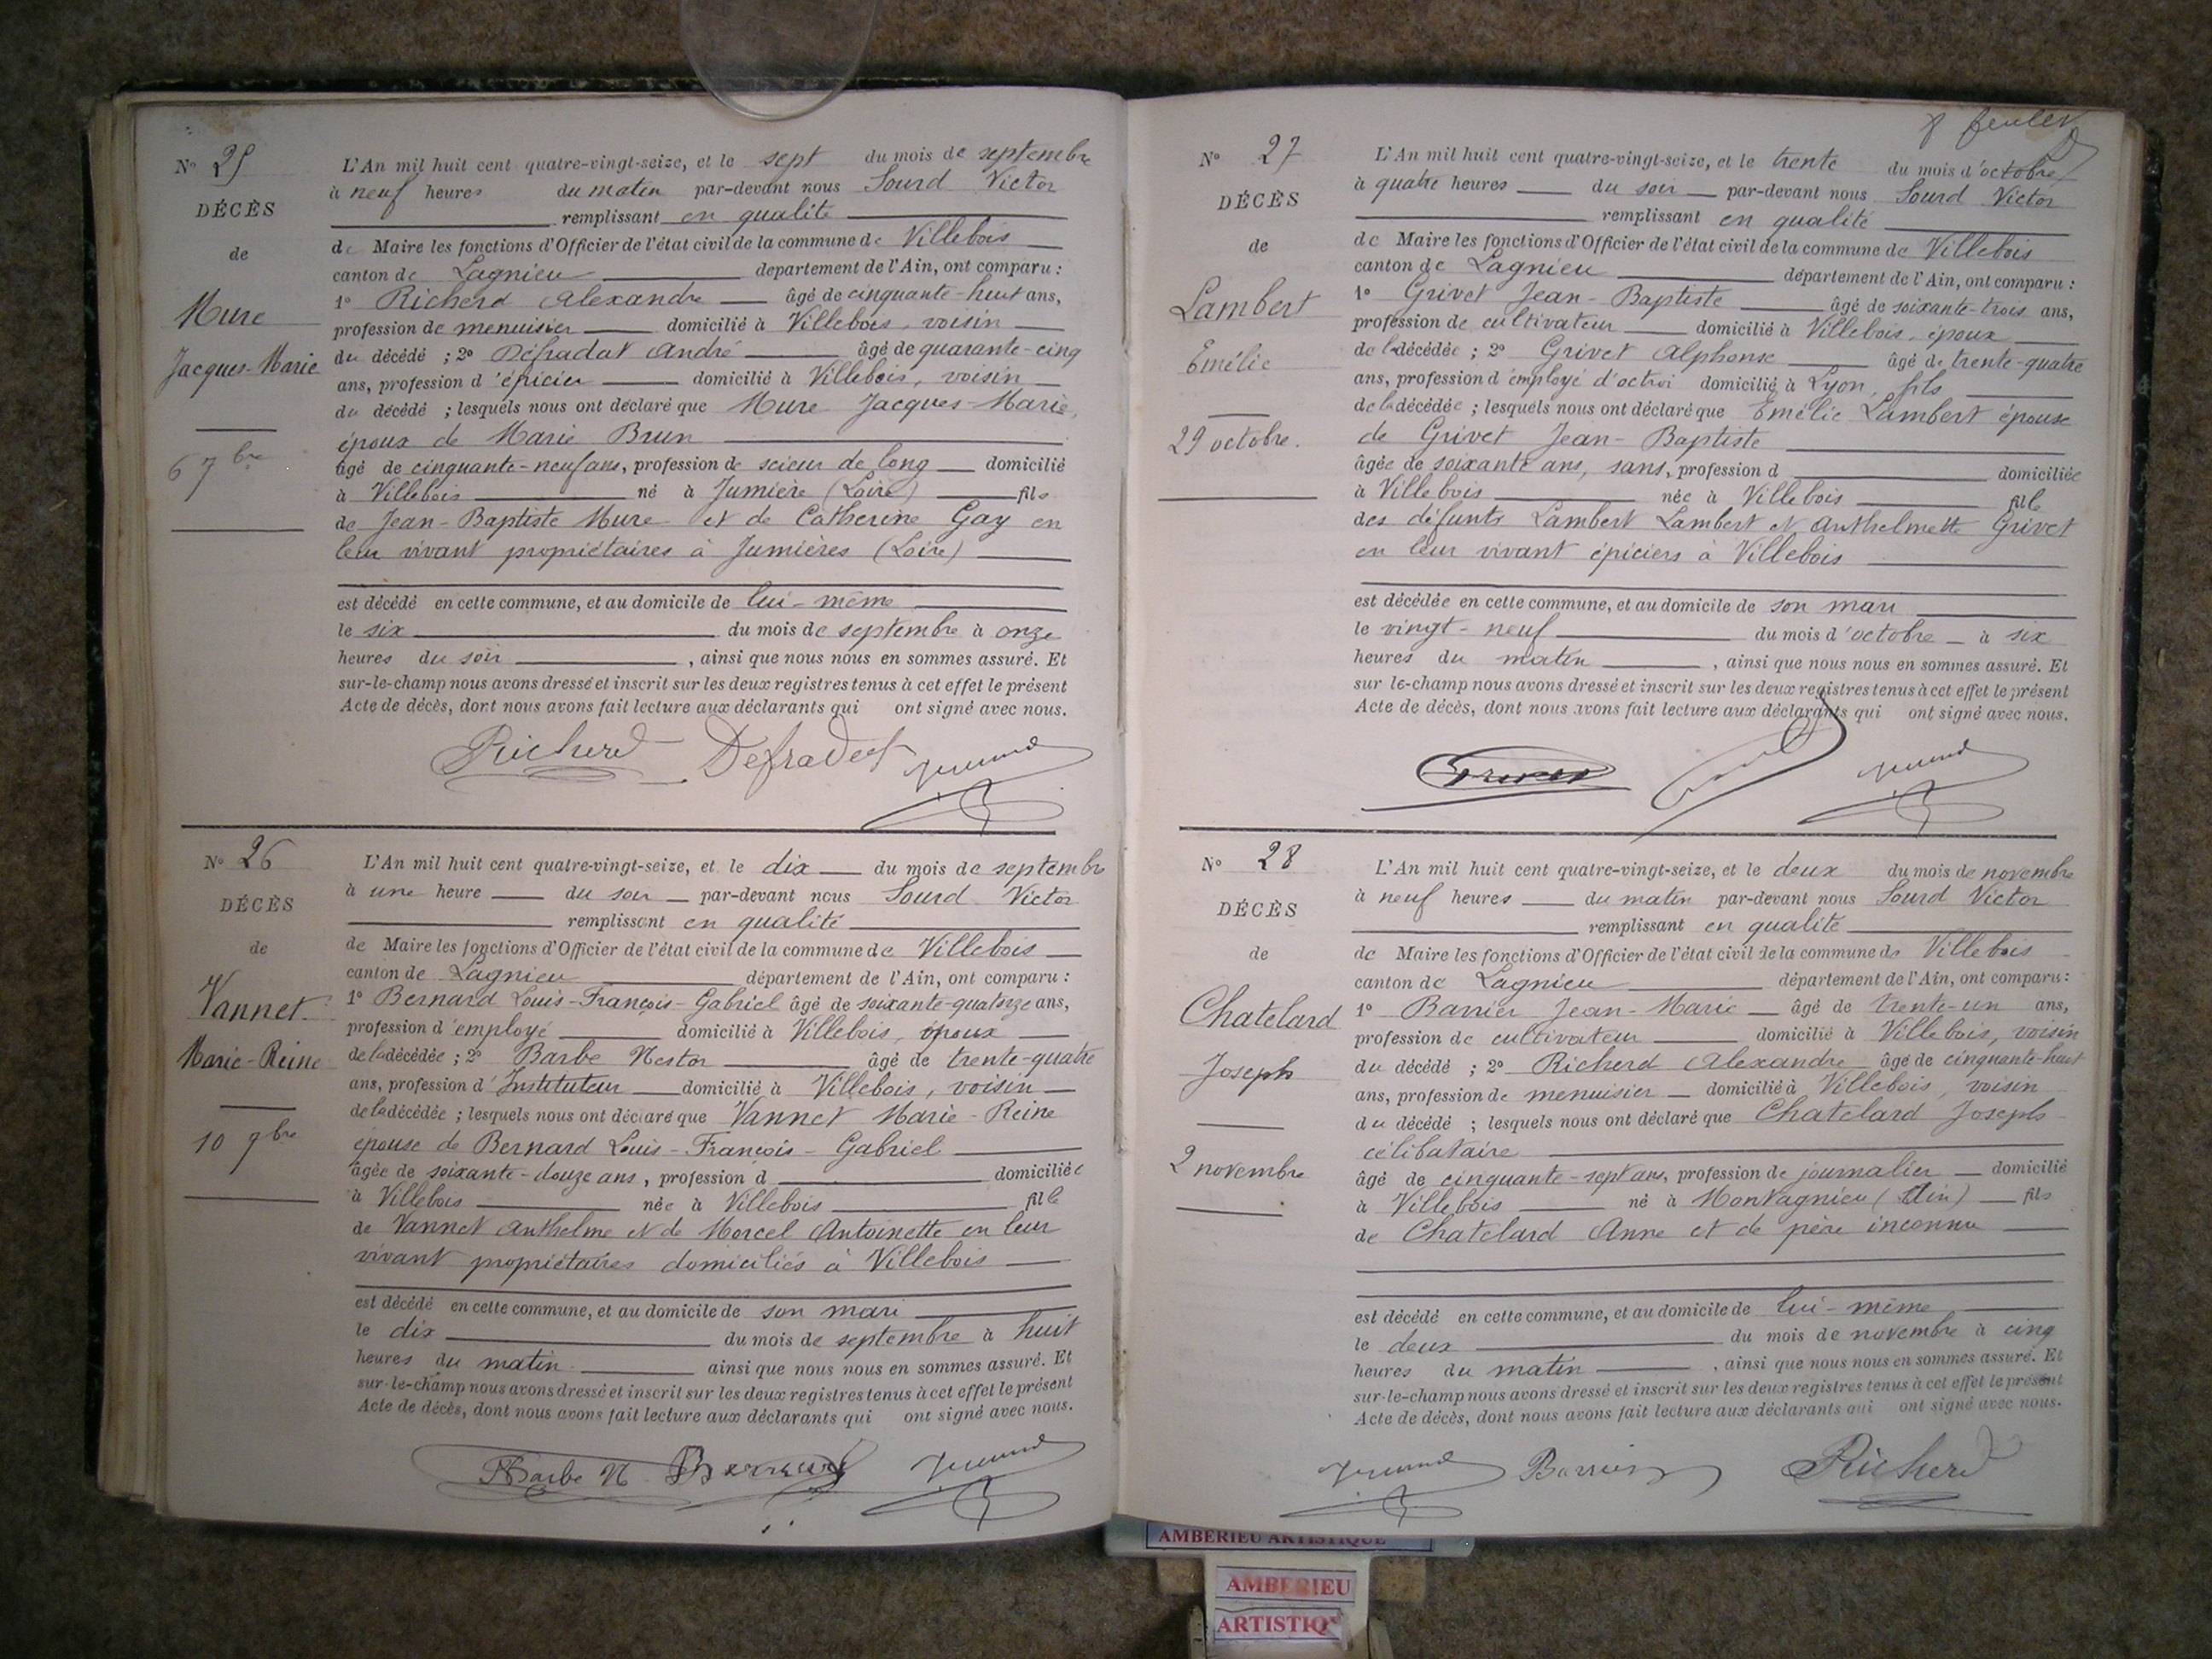 N° 25
DÉCÈS
de
Mure
Jacques-Marie
6 7bre
L'An mil huit cent quatre-vingt-seize, et le sept du mois de septembre
à neuf heures du matin par-devant nous Sourd Victor
remplissant en qualité
de Maire les fonctions d'Officier de l'état civil de la commune de Villebois
canton de Lagnieu département de l'Ain, ont comparu :
1° Richerd Alexandre âgé de cinquante-huit ans,
profession de menuisier domicilié à Villebois, voisin
du décédé ; 2° Défradat André âgé de quarante-cinq
ans, profession d'épicier domicilié à Villebois, voisin
du décédé ; lesquels nous ont déclaré que Mure Jacques-Marie,
époux de Marie Brun
âgé de cinquante-neuf ans, profession de scieur de long domicilié
à Villebois né à Jumière (Loire) fils
de Jean-Baptiste Mure et de Catherine Gay en
leur vivant propriétaires à Jumières (Loire)
est décédé en cette commune, et au domicile de lui-même
le six du mois de septembre à onze
heures du soir , ainsi que nous nous en sommes assuré. Et
sur-le-champ nous avons dressé et inscrit sur les deux registres tenus à cet effet le présent
Acte de décès, dont nous avons fait lecture aux déclarants qui ont signé avec nous.
Richerd Defradat
N° 26
DÉCÈS
de
Vannet
Marie-Reine
10 7bre
L'An mil huit cent quatre-vingt-seize, et le dix du mois de septembre
à une heure du soir par-devant nous Sourd Victor
remplissant en qualité
de Maire les fonctions d'Officier de l'état civil de la commune de Villebois
canton de Lagnieu département de l'Ain, ont comparu :
1° Bernard Louis-François-Gabriel âgé de soixante-quatorze ans,
profession d'employé domicilié à Villebois, époux
de la décédée ; 2° Barbe Nestor âgé de trente-quatre
ans, profession d'Instituteur domicilié à Villebois, voisin
de la décédée ; lesquels nous ont déclaré que Vannet Marie-Reine
épouse de Bernard Louis-François-Gabriel
âgée de soixante-douze ans, profession d domiciliée
à Villebois née à Villebois fille
de Vannet Anthelme et de Morcel Antoinette en leur
vivant propriétaires domiciliés à Villebois
est décédé en cette commune, et au domicile de son mari
le dix du mois de septembre à huit
heures du matin ainsi que nous nous en sommes assuré. Et
sur-le-champ nous avons dressé et inscrit sur les deux registres tenus à cet effet le présent
Acte de décès, dont nous avons fait lecture aux déclarants qui ont signé avec nous.
Barbe N Bernard
N° 27
DÉCÈS
de
Lambert
Emélie
29 octobre.
L'An mil huit cent quatre-vingt-seize, et le trente du mois d'octobre
à quatre heures du soir par-devant nous Sourd Victor
remplissant en qualité
de Maire les fonctions d'Officier de l'état civil de la commune de Villebois
canton de Lagnieu département de l'Ain, ont comparu :
1° Grivet Jean-Baptiste âgé de soixante-trois ans,
profession de cultivateur domicilié à Villebois, époux
de la décédée ; 2° Grivet Alphonse âgé de trente-quatre
ans, profession d'employé d'octroi domicilié à Lyon, fils
de la décédée ; lesquels nous ont déclaré que Emélie Lambert épouse
de Grivet Jean-Baptiste
âgée de soixante ans, sans, profession d domiciliée
à Villebois née à Villebois fille
des défunts Lambert Lambert et Anthelmette Grivet
en leur vivant épiciers à Villebois
est décédée en cette commune, et au domicile de son mari
le vingt-neuf du mois d'octobre à six
heures du matin , ainsi que nous nous en sommes assuré. Et
sur le-champ nous avons dressé et inscrit sur les deux registres tenus à cet effet le présent
Acte de décès, dont nous avons fait lecture aux déclarants qui ont signé avec nous.
Grivet
N° 28
DÉCÈS
de
Chatelard
Joseph
2 novembre
L'An mil huit cent quatre-vingt-seize, et le deux du mois de novembre
à neuf heures du matin par-devant nous Sourd Victor
remplissant en qualité
de Maire les fonctions d'Officier de l'état civil de la commune de Villebois
canton de Lagnieu département de l'Ain, ont comparu :
1° Barrier Jean-Marie âgé de trente-un ans,
profession de cultivateur domicilié à Villebois, voisin
du décédé ; 2° Richerd Alexandre âgé de cinquante-huit
ans, profession de menuisier domicilié à Villebois, voisin
du décédé ; lesquels nous ont déclaré que Chatelard Joseph
célibataire
âgé de cinquante-sept ans, profession de journalier domicilié
à Villebois né à Montagnieu (Ain) fils
de Chatelard Anne et de père inconnu
est décédé en cette commune, et au domicile de lui-même
le deux du mois de novembre à cinq
heures du matin , ainsi que nous nous en sommes assuré. Et
sur-le-champ nous avons dressé et inscrit sur les deux registres tenus à cet effet le présent
Acte de décès, dont nous avons fait lecture aux déclarants qui ont signé avec nous.
Barrier Richerd
AMBERIEU ARTISTIQUE
AMBERIEU
ARTISTIQ